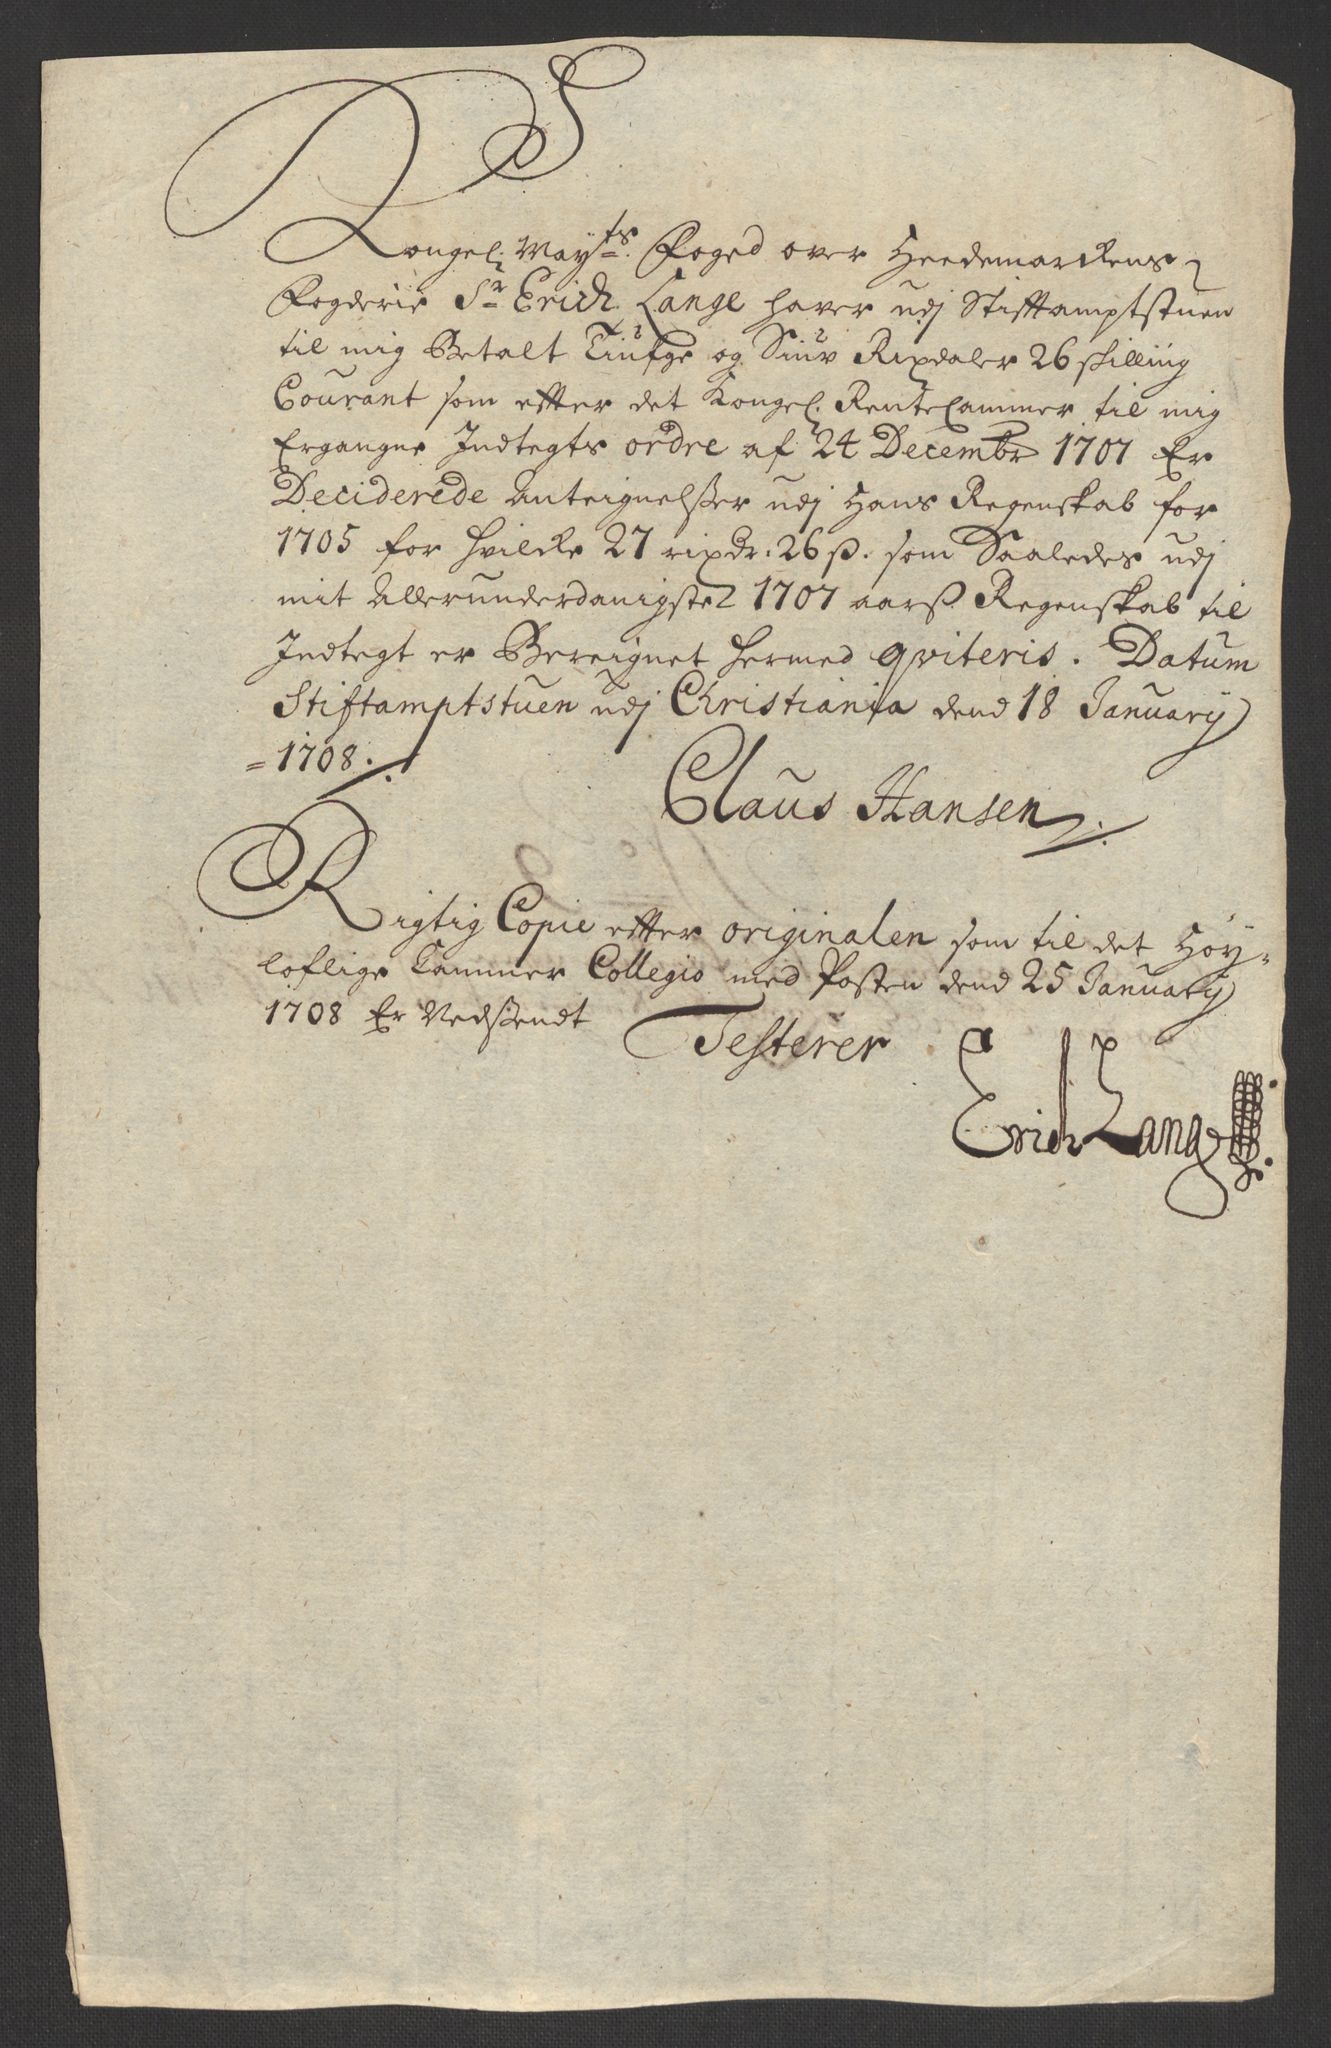 Kongel: May:ts Foged over Heedemarckens
Fogderie Sr Erich Lange haver udj Stiftamptstuen
til mig Betalt Tiufge og Siuv Rixdaler 26 skilling
Courant som efter det Kongel. Rentecammer til mig
Ergangne Indtegts ordre af 24 Decembr 1707 Er
Deciderede Anteignelsser udj Hans Regenskab for
1705 for hvilcke 27 rixdr. 26 ß. som Saaledes udj
mit Allerunderdanigste 1707 aars Regenskab til
Indtegt er Bereignet hermed qviteris. Datum
Stiftamptstuen udj Christiania dend 18 January
=1708.
Claus Hansen
Rigtig Copie efter originalen som til det Høy=
loflige Cammer Collegio med Posten dend 25 January
1708 Er Nedsendt
Testerer
Erich Lange